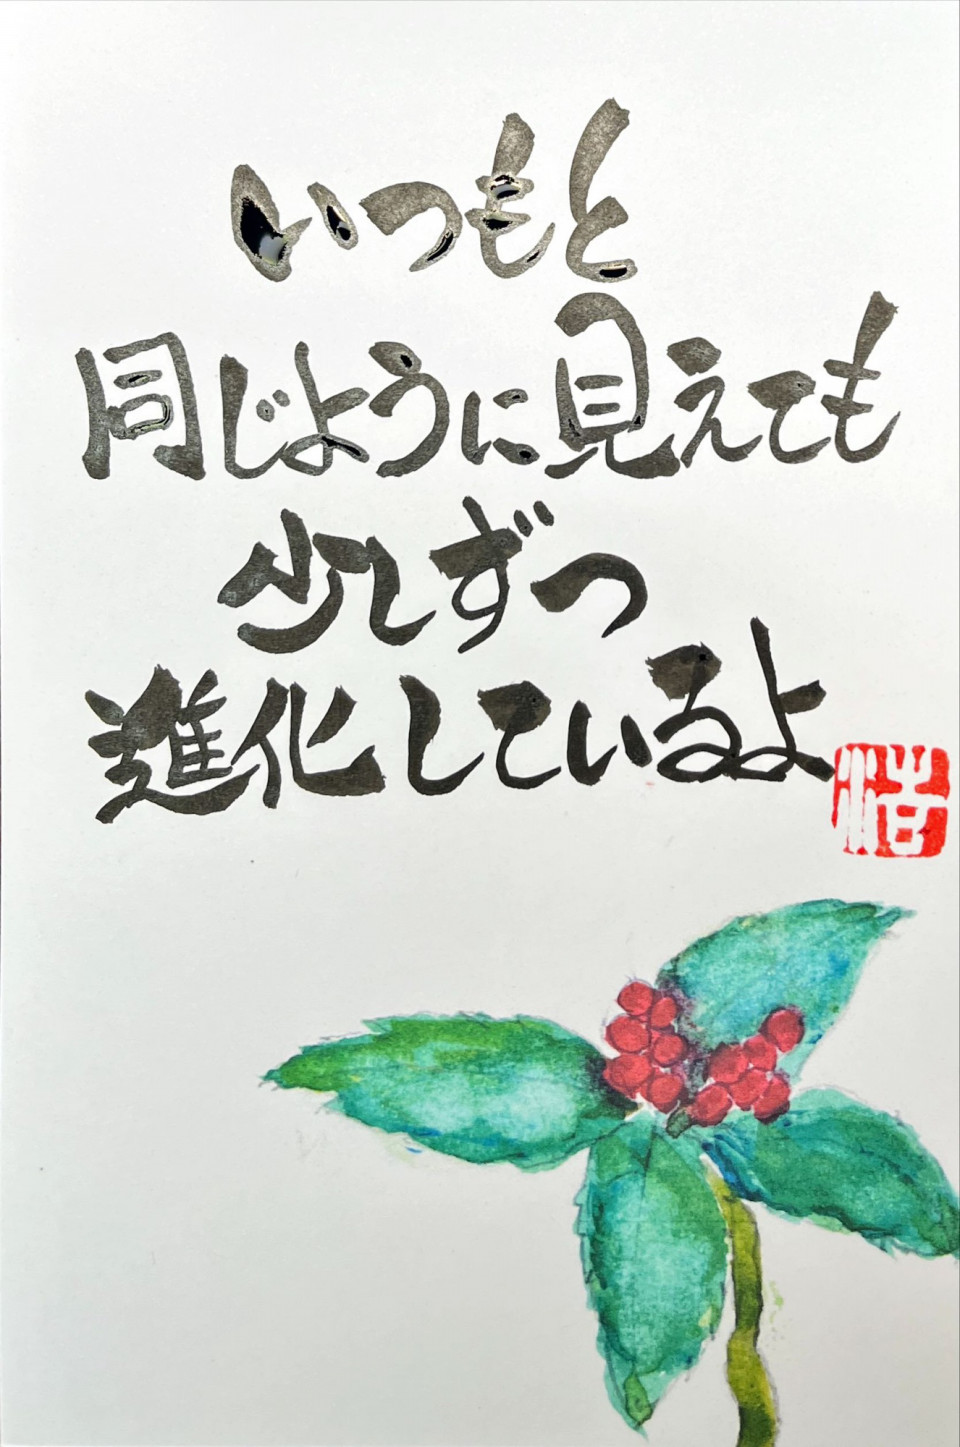 いつもと
同じように見えても
少しずつ
進化しているよ